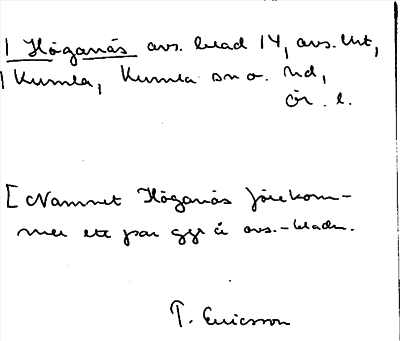 1 Höganäs avs. blad 14, avs. Unt,
1 Kumla, Kumla sn o. hd,
Ör. l.
[Namnet Höganäs förekom-
mer ett par ggr å avs.-bladen.
T. Ericsson